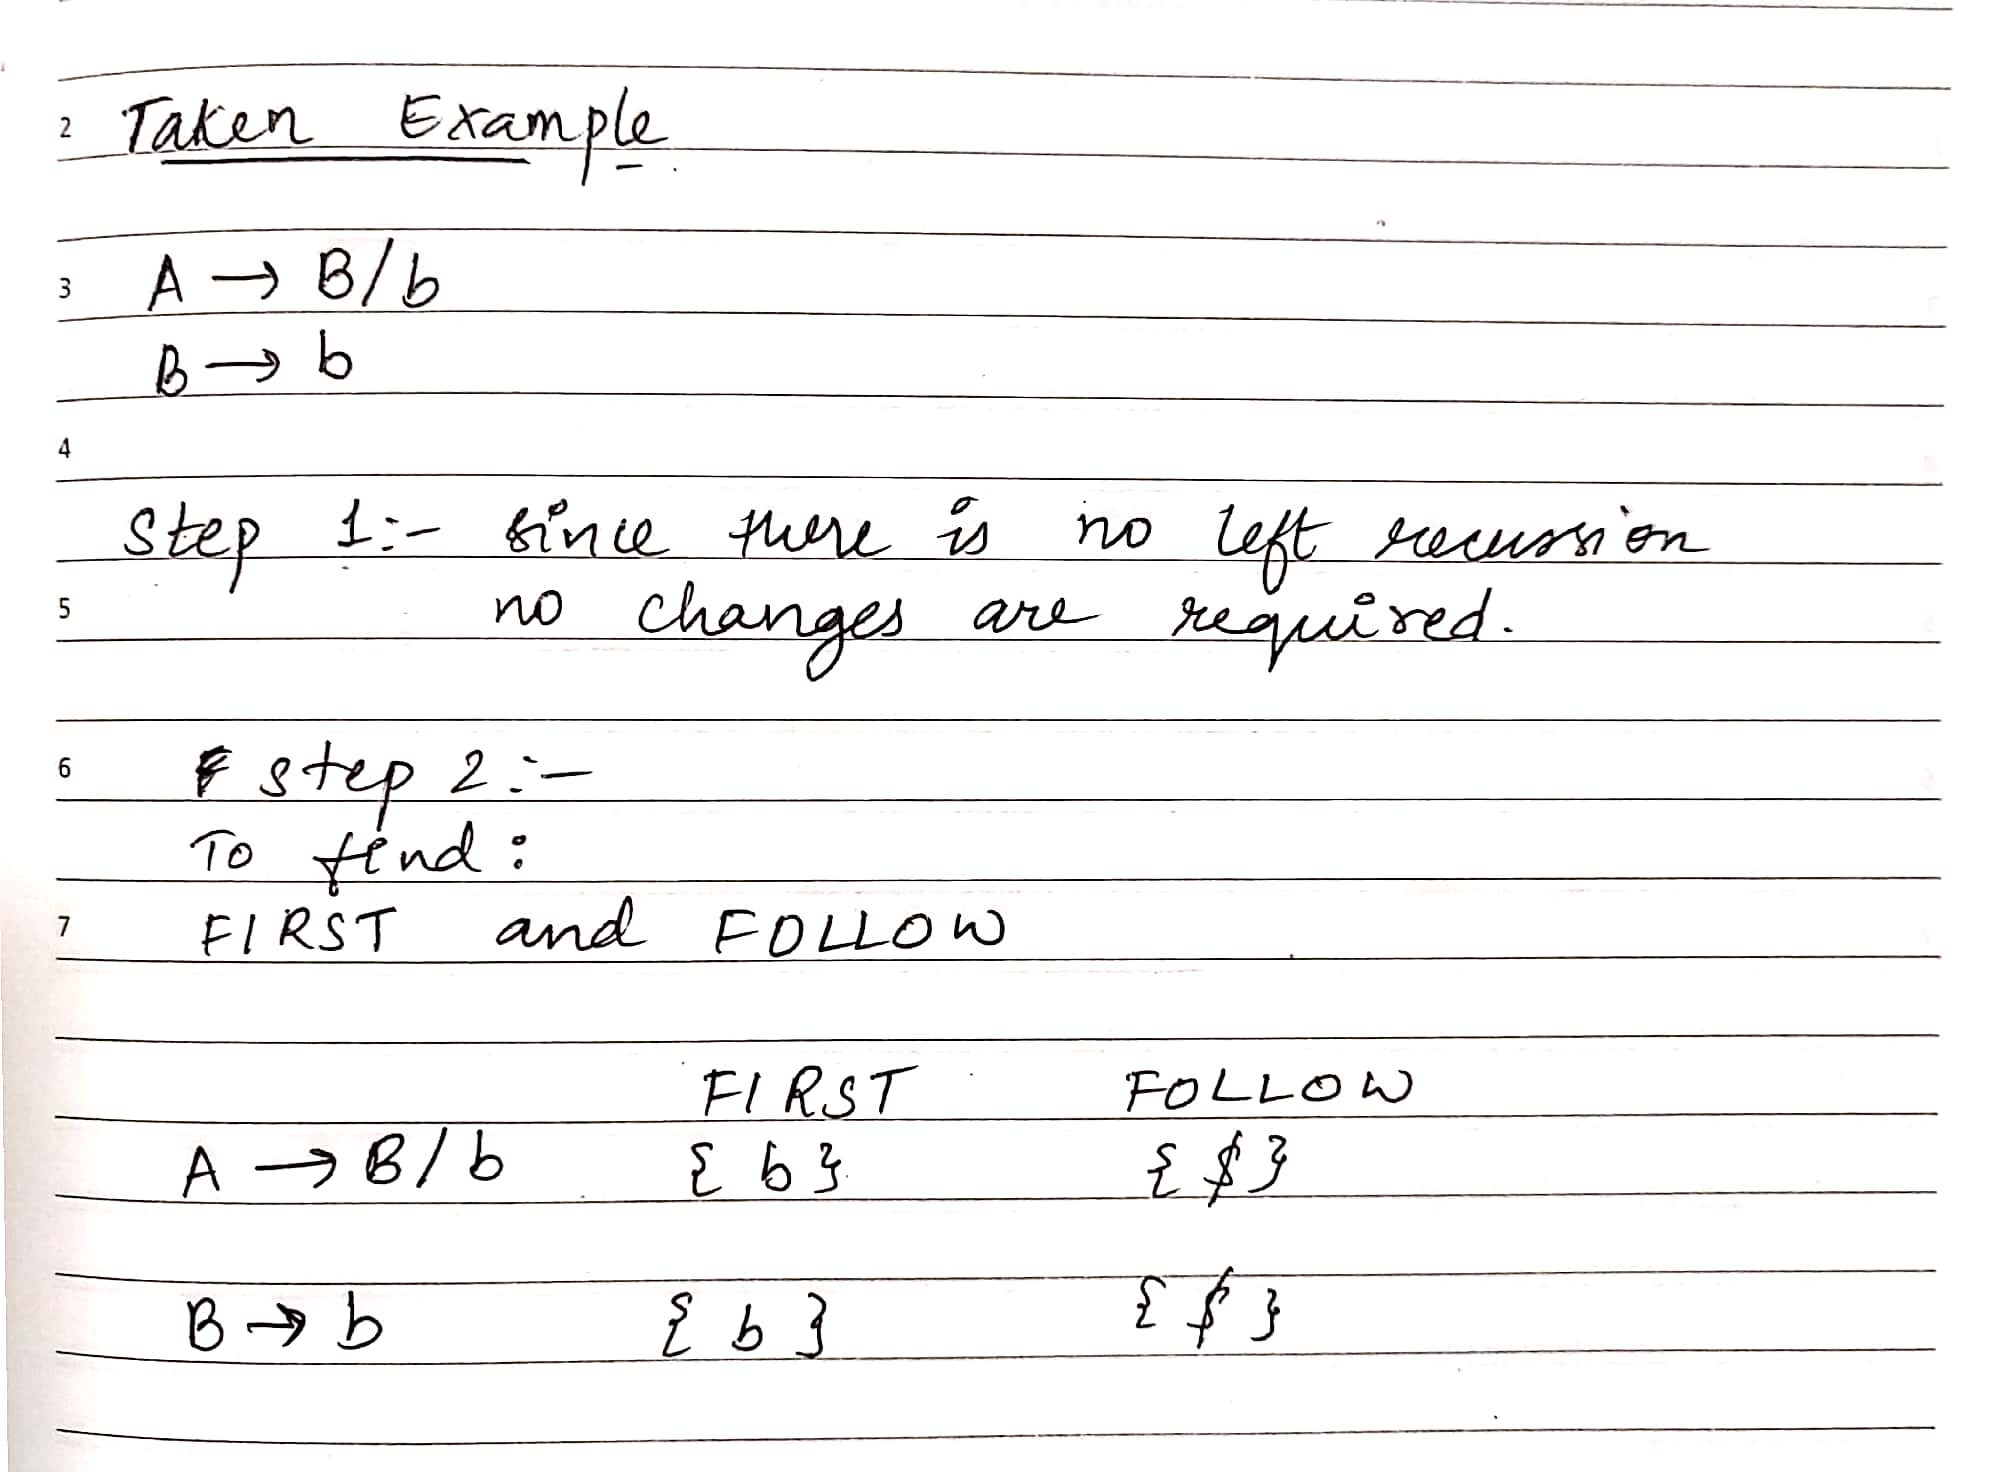 2 Taken Example
3 A → B/b
B → b
4
Step 1:- Since there is no left recussion
5 no changes are required.
6 step 2:-
To find:
7 FIRST and FOLLOW
FIRST FOLLOW
A → B/b {b} {$}
B → b {b} {$}